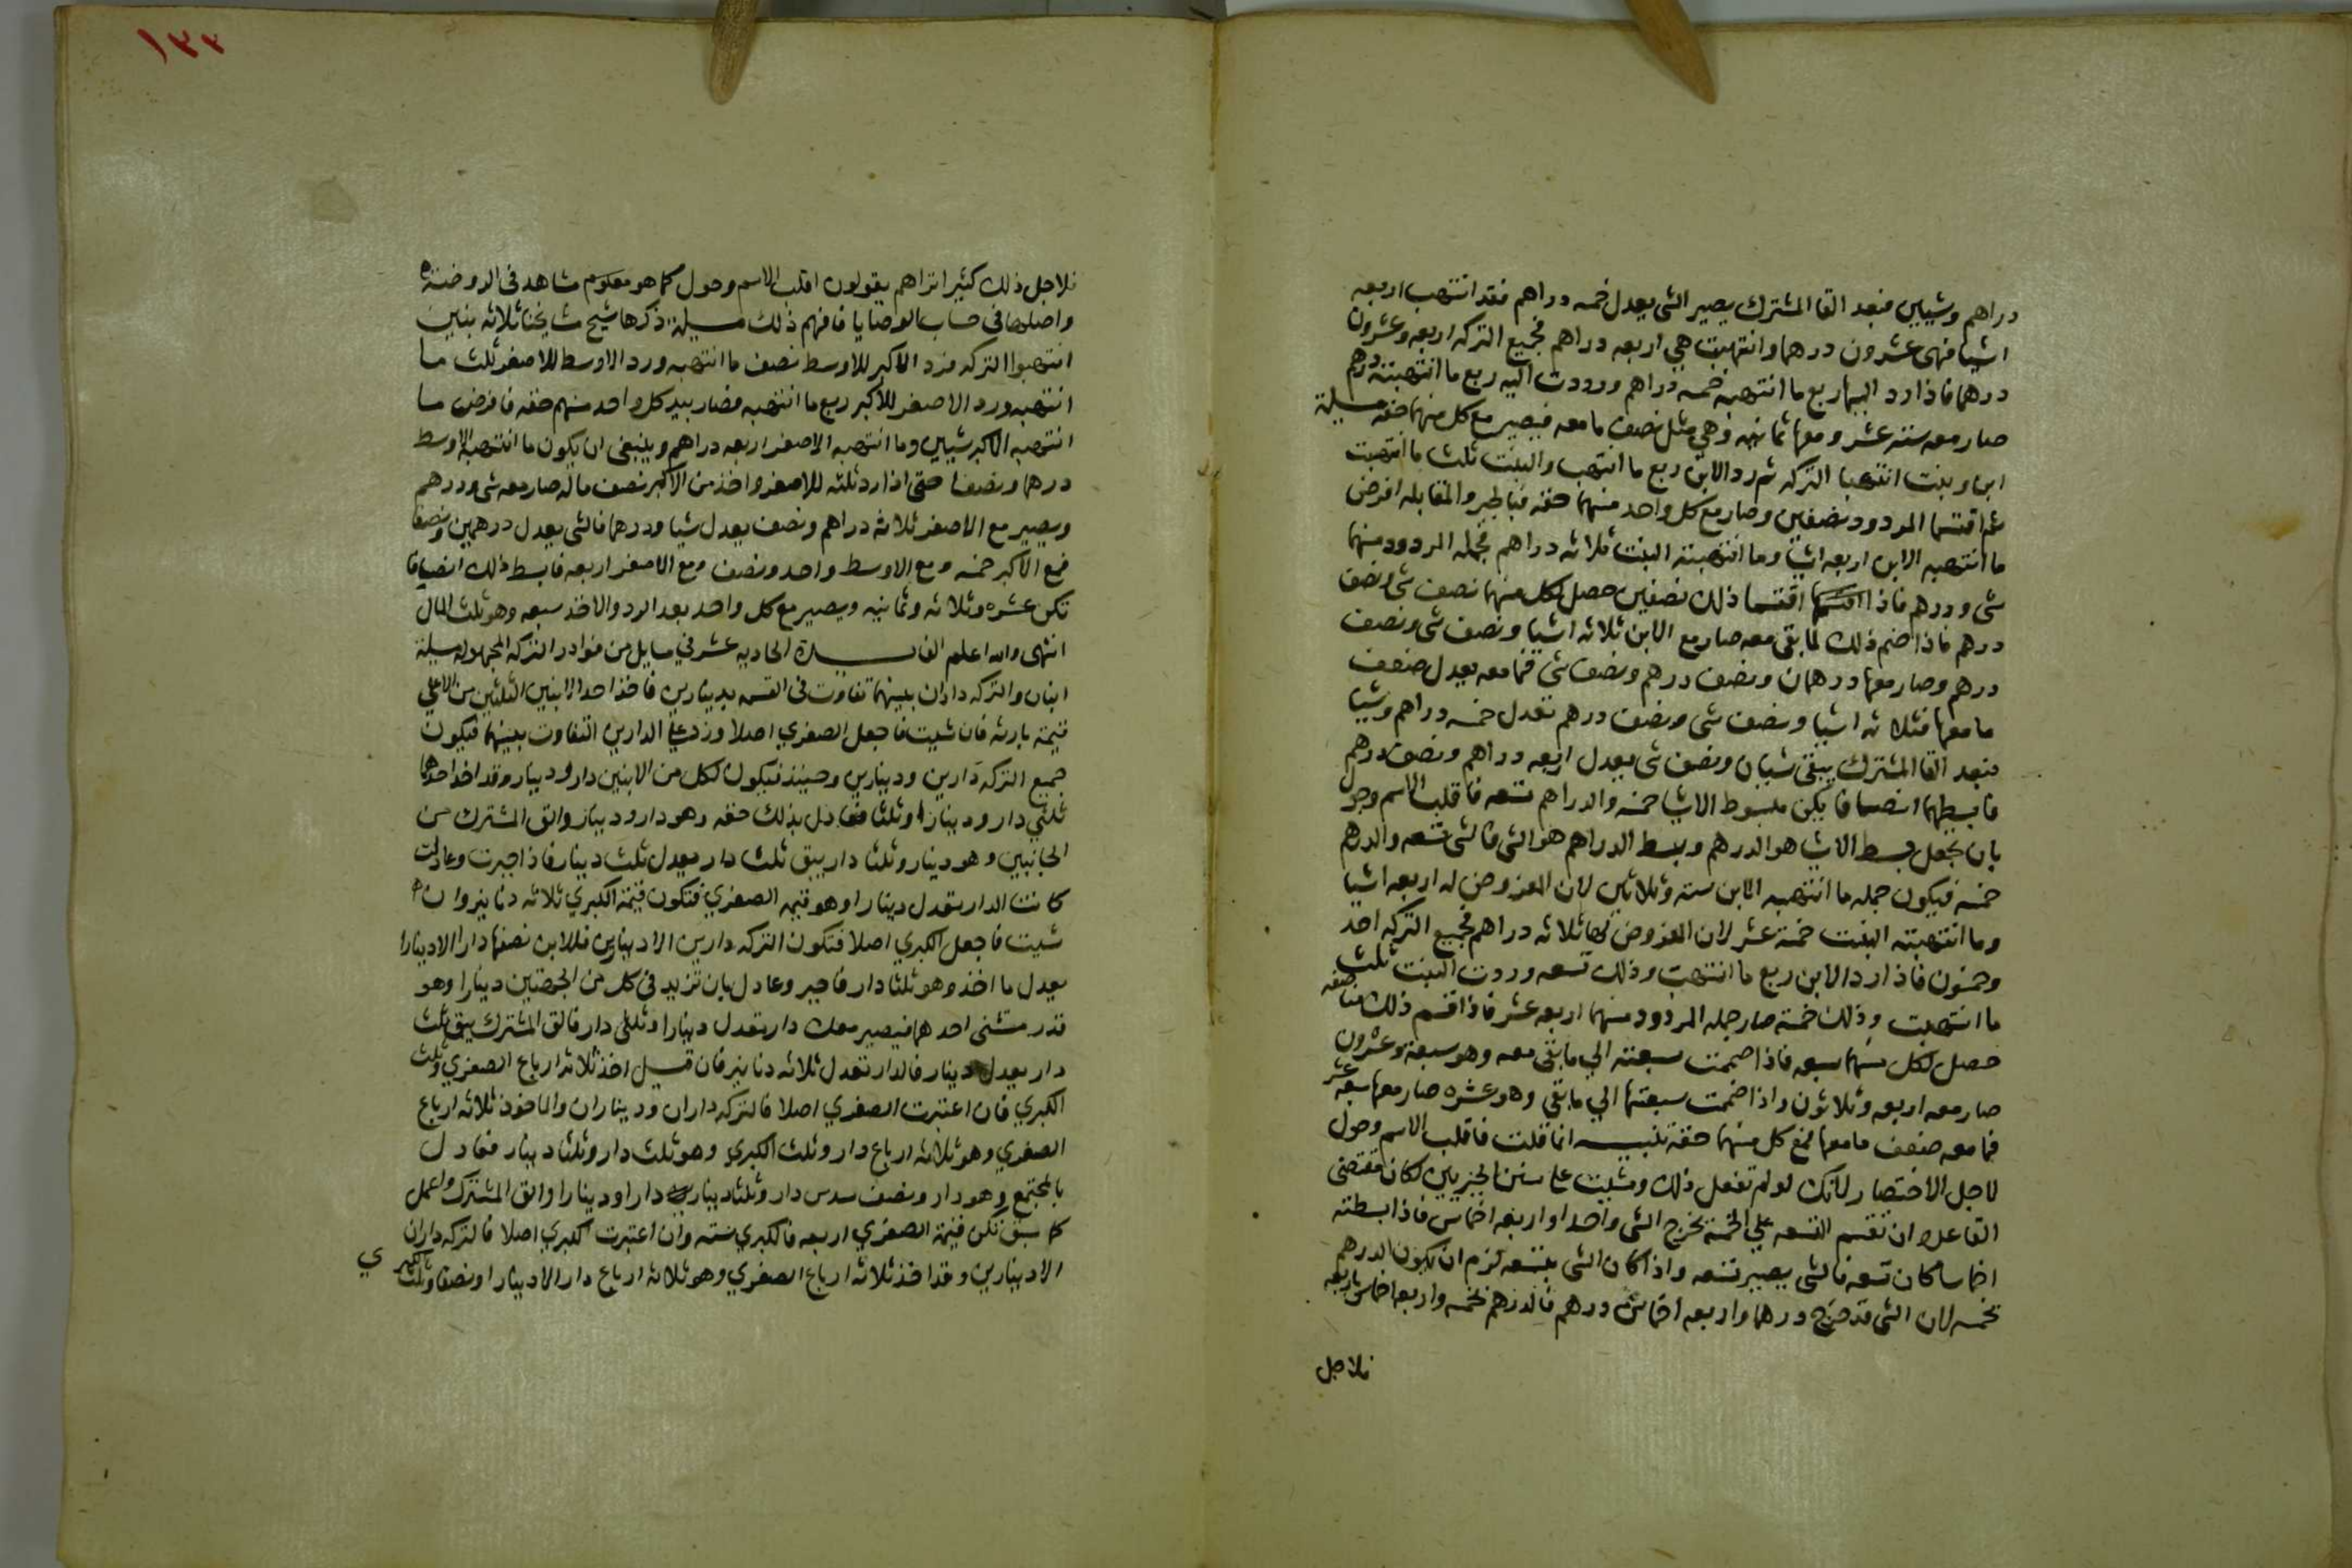 دراهم وشيين فبعد القا المشترك يصير الشى يعدل خمسه دراهم فقد انتهب اربعه
اشيا فهى عشرون درهما وانتهبت هي اربعه دراهم فجميع التركه اربعه وعشرون
درهما فاذا رد اليها ربع ما انتهبه خمسه دراهم وردت اليه ربع ما انتهبته درهم
صار معه ستة عشر ومعها ثمانيه وهي مثل نصف ما معه فيصير مع كل منهما حقه مسيلة
ابن وبنت انتهبا التركه ثم رد الابن ربع ما انتهب والبنت ثلث ما انتهبت
ثم اقتسما المردود نصفين وصار مع كل واحد منهما حقه فبالجبر والمقابله افرض
ما انتهبه الابن اربعه اشيا وما انتهبته البنت ثلاثه دراهم فجمله المردود منهما
شى ودرهم فاذا اقتسما ذلك نصفين حصل لكل منهما نصف شى ونصف
درهم فاذا ضم ذلك لما بقى معه صار مع الابن ثلاثه اشيا ونصف شى ونصف
درهم وصار معها درهمان ونصف درهم ونصف شى فما معه يعدل ضعف
ما معها فثلاثه اشيا ونصف شى ونصف درهم تعدل خمسه دراهم وشيا
فبعد القا المشترك يبقى شيان ونصف شى يعدل اربعه دراهم ونصف درهم
فابسطهما انصافا يكن مبسوط الاشيا خمسه والدراهم تسعه فاقلب الاسم وحول
بان تجعل بسط الاشيا هو الدرهم وبسط الدراهم هو الشى فالشى تسعه والدرهم
خمسه فيكون جمله ما انتهبه الابن سته وثلاثين لان المفروض له اربعه اشيا
وما انتهبته البنت خمسة عشر لان المفروض لها ثلاثه دراهم فجميع التركه احد
وخمسون فاذا رد الابن ربع ما انتهب وذلك تسعه وردت البنت ثلث
ما انتهبت وذلك خمسة صار جمله المردود منهما اربعه عشر فاذا قسم ذلك مناصفه
حصل لكل منهما سبعه فاذا ضممت سبعته الي ما بقى معه وهو سبعة وعشرون
صار معه اربعه وثلاثون واذا ضممت سبعتها الي ما بقي وهو عشره صار معها سبعه عشر
فما معه ضعف ما معها فمع كل منهما حقه تنبيه انما قلت فاقلب الاسم وحول
لاجل الاختصار لانك لو لم تفعل ذلك ومشيت على سنن الجبريين لكان مقتضى
القاعده ان تقسم التسعه علي الخمسة تخرج الشى واحدا واربعه اخماس فاذا بسطته
اخماسا كان تسعه فالشى يصير تسعه واذا كان الشى بتسعه لزم ان يكون الدرهم
بخمسه لان الشى قد خرج درهما واربعه اخماس درهم فالدرهم بخمسه واربعه اخماس باربعه
فلاجل
١٣٣
فلاجل ذلك كثيرا تراهم يقولون اقلب الاسم وحول كما هو معلوم مشاهد فى الروضة
واصلها فى حساب الوصايا فافهم ذلك مسيلة ذكرها شيخ مشايخنا ثلاثه بنين
انتهبوا التركه فرد الاكبر للاوسط نصف ما انتهبه ورد الاوسط للاصغر ثلث ما
انتهبه ورد الاصغر للاكبر ربع ما انتهبه فصار بيد كل واحد منهم حقه فافرض ما
انتهبه الاكبر شيين وما انتهبه الاصغر اربعه دراهم وينبغى ان يكون ما انتهبه الاوسط
درهما ونصفا حتى اذا رد ثلثه للاصغر واخذ من الاكبر نصف ماله صار معه شى ودرهم
ويصير مع الاصغر ثلاثه دراهم ونصف يعدل شيا ودرهما فالشى يعدل درهمين ونصفا
فمع الاكبر خمسه ومع الاوسط واحد ونصف ومع الاصغر اربعه فابسط ذلك انصافا
تكن عشره وثلاثه وثمانيه ويصير مع كل واحد بعد الرد والاخذ سبعه وهو ثلث المال
انتهى والله اعلم الفايده الحاديه عشر في مسايل من نوادر التركه المجهوله مسيلة
ابنان والتركه داران بينهما تفاوت فى القسمه بدينارين فاخذ احد الابنين الثلثين من الاعلي
قيمة بارثه فان شيت فاجعل الصغري اصلا وزد على الدارين التفاوت بينهما فيكون
جميع التركه دارين ودينارين وحينئذ فيكون لكل من الابنين دار ودينار وقد اخذ احدهما
ثلثي دار ودينارا وثلثا فعادل بذلك حقه وهو دار ودينار والق المشترك من
الجانبين وهو دينار وثلثا دار يبق ثلث دار يعدل ثلث دينار فاذا جبرت وعادلت
كانت الدار تعدل دينارا وهو قيمه الصغري فتكون قيمة الكبري ثلاثه دنانير وان
شيت فاجعل الكبري اصلا فتكون التركه دارين الا دينارين فللابن نصفها دارا الا دينارا
يعدل ما اخذ وهو ثلثا دار فاجبر وعادل بان تزيد فى كل من الجهتين دينارا وهو
قدر مستثنى احدهما فيصير معك دار تعدل دينارا وثلثى دار فالق المشترك يبق ثلث
دار يعدل دينار فالدار تعدل ثلاثه دنانير فان قيل اخذ ثلاثه ارباع الصغري وثلث
الكبري فان اعتبرت الصغري اصلا فالتركه داران وديناران والماخوذ ثلاثه ارباع
الصغري وهو ثلاثه ارباع دار وثلث الكبري وهو ثلث دار وثلثا دينار فعادل
بالمجتمع وهو دار ونصف سدس دار وثلثا دينار دارا ودينارا والق المشترك واعمل
كما سبق تكن قيمة الصغري اربعه فالكبري سته وان اعتبرت الكبري اصلا فالتركه داران
الا دينارين وقد اخذ ثلاثه ارباع الصغري وهو ثلاثه ارباع دار الا دينارا ونصفا وثلث الكبري